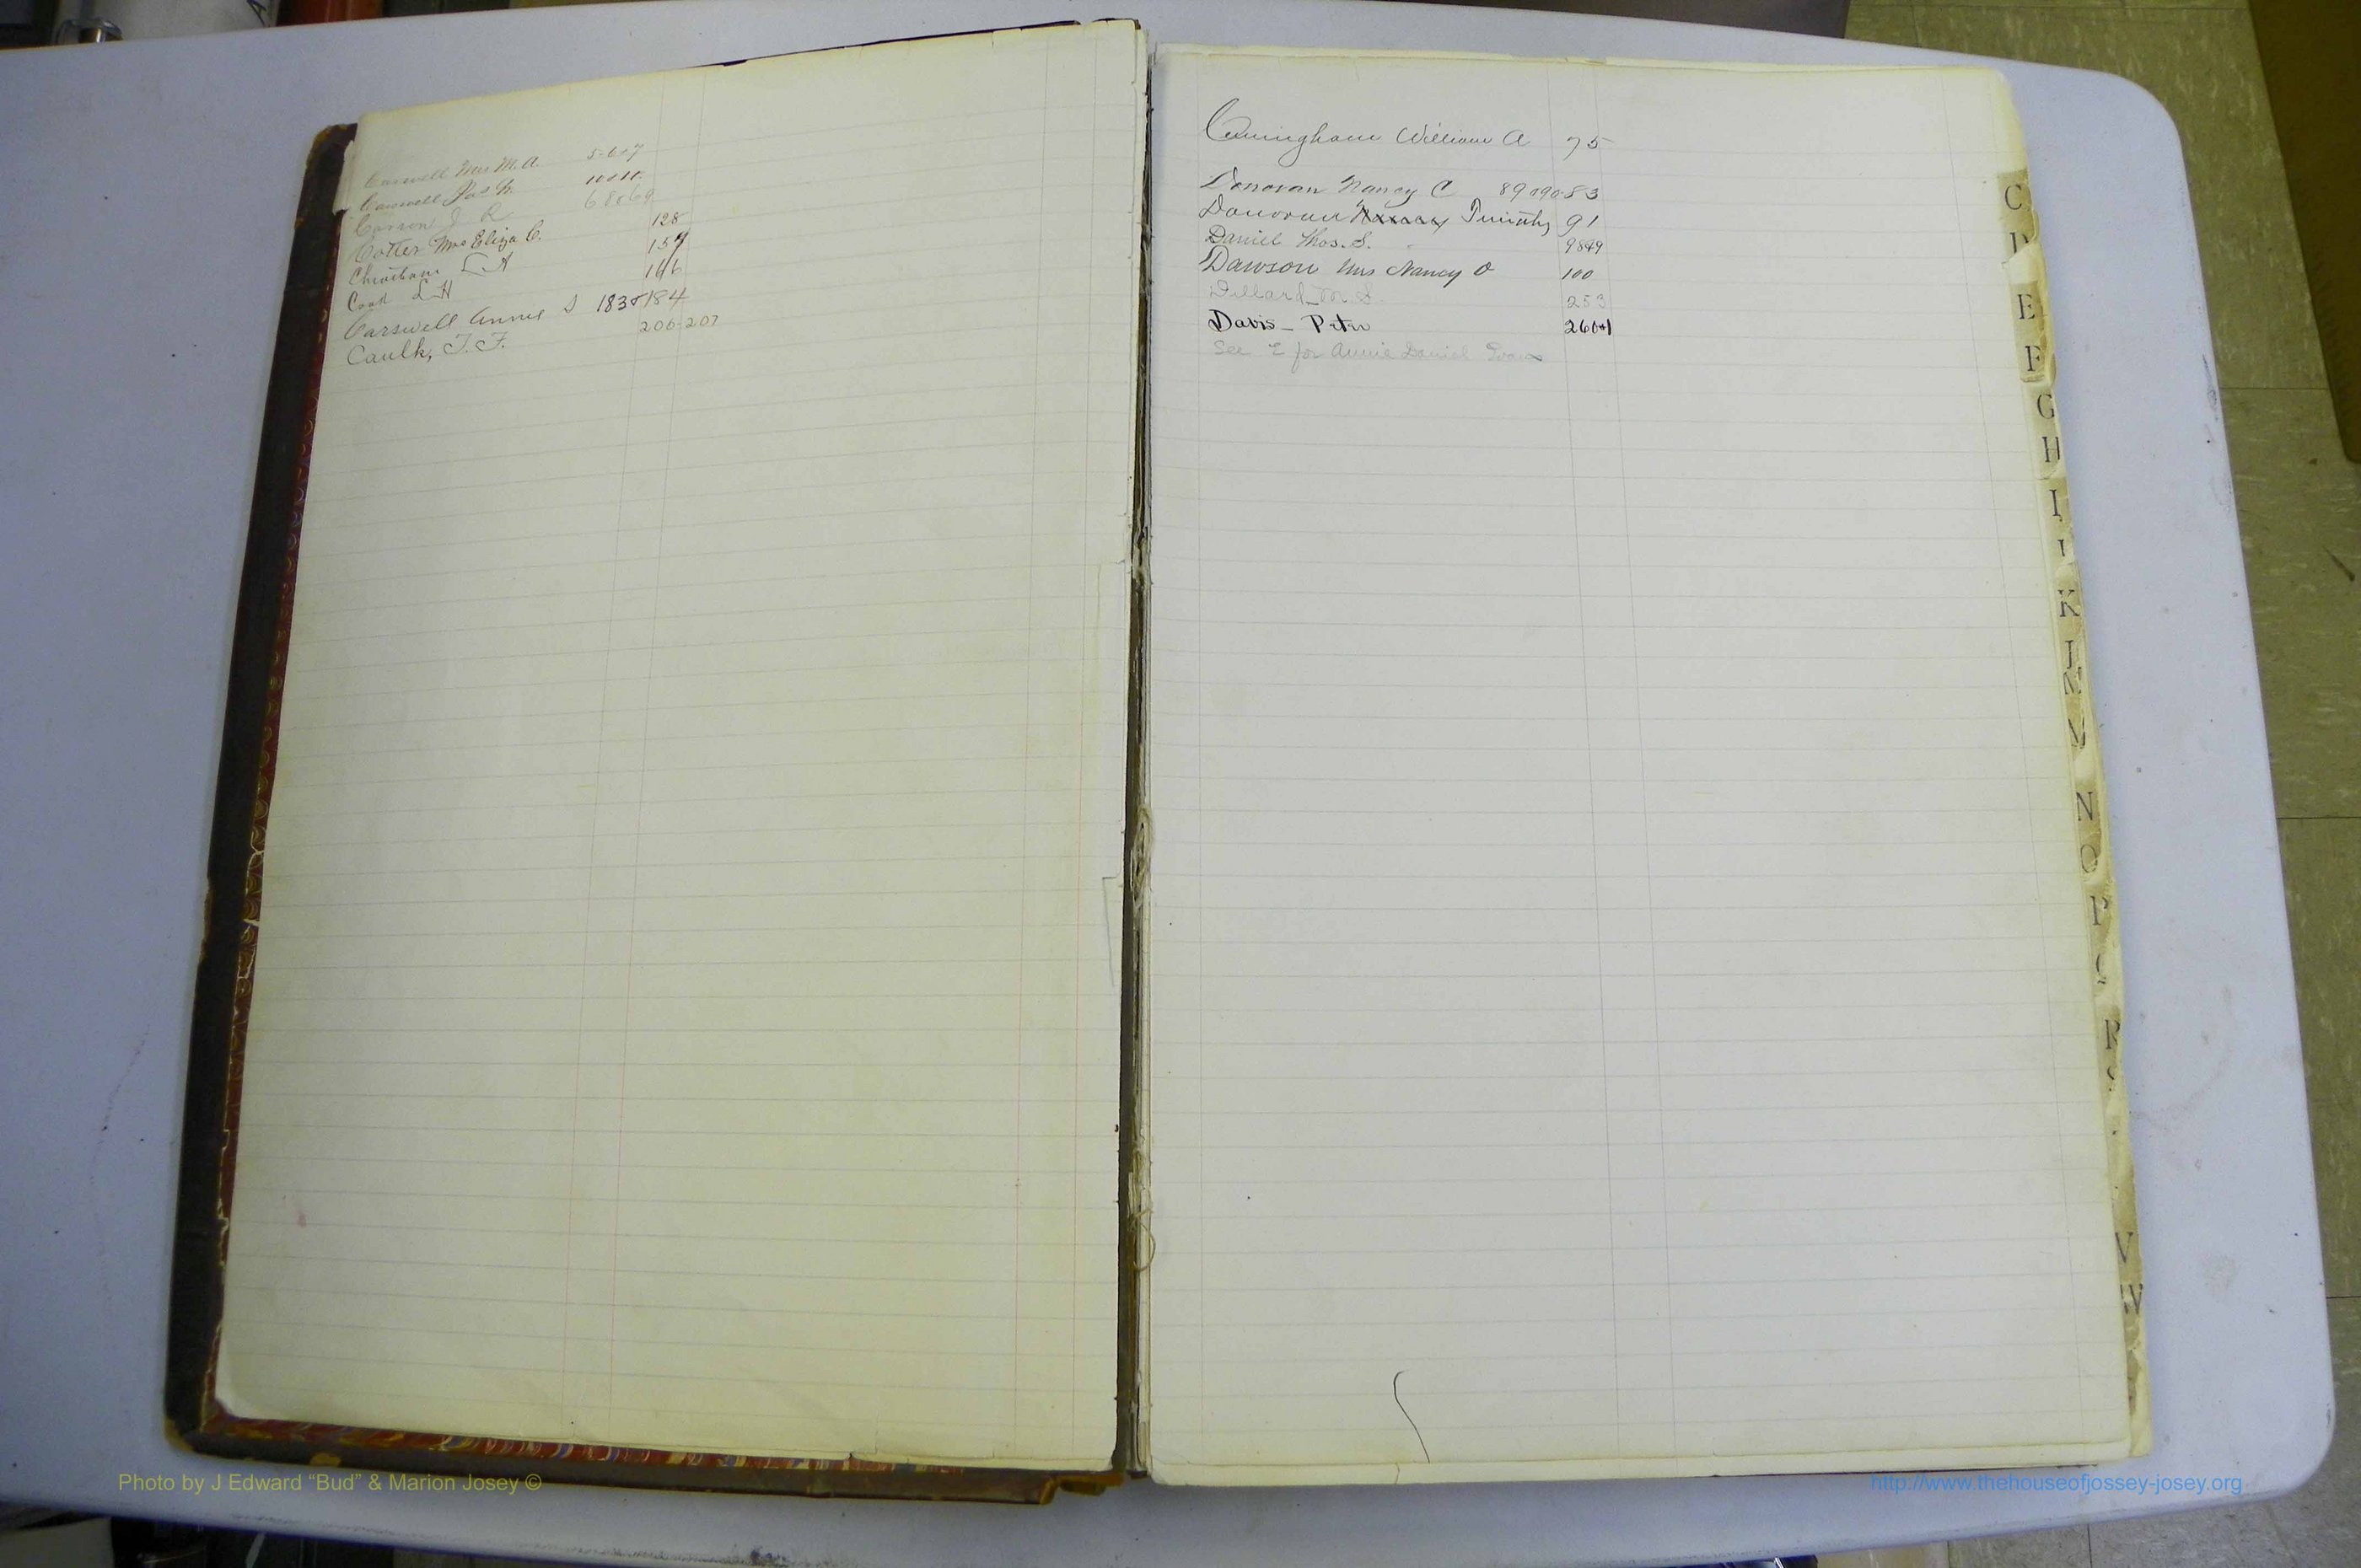 Carswell Mrs M. A. 5-6&7
Carswell Jas N. 10&11
Carson J R 68&69
Cotter Mrs Eliza C. 128
Cheatham L A 157
Cook L H 166
Carswell Annie S 183&184
Caulk, T. F. 206-207
Cuningham William A 75
Donovan Nancy C
Donovan Timothy 91
Daniel Thos. S.
Dawson Mrs Nancy O 100
Dillard M S. 253
Davis - Peter 260&1
See E for Annie Daniel Evans
C
D
E
F
G
H
I
K
N
O
P
R
V
W
Photo by J Edward “Bud” & Marion Josey ©
http://www.thehouseofjossey-josey.org